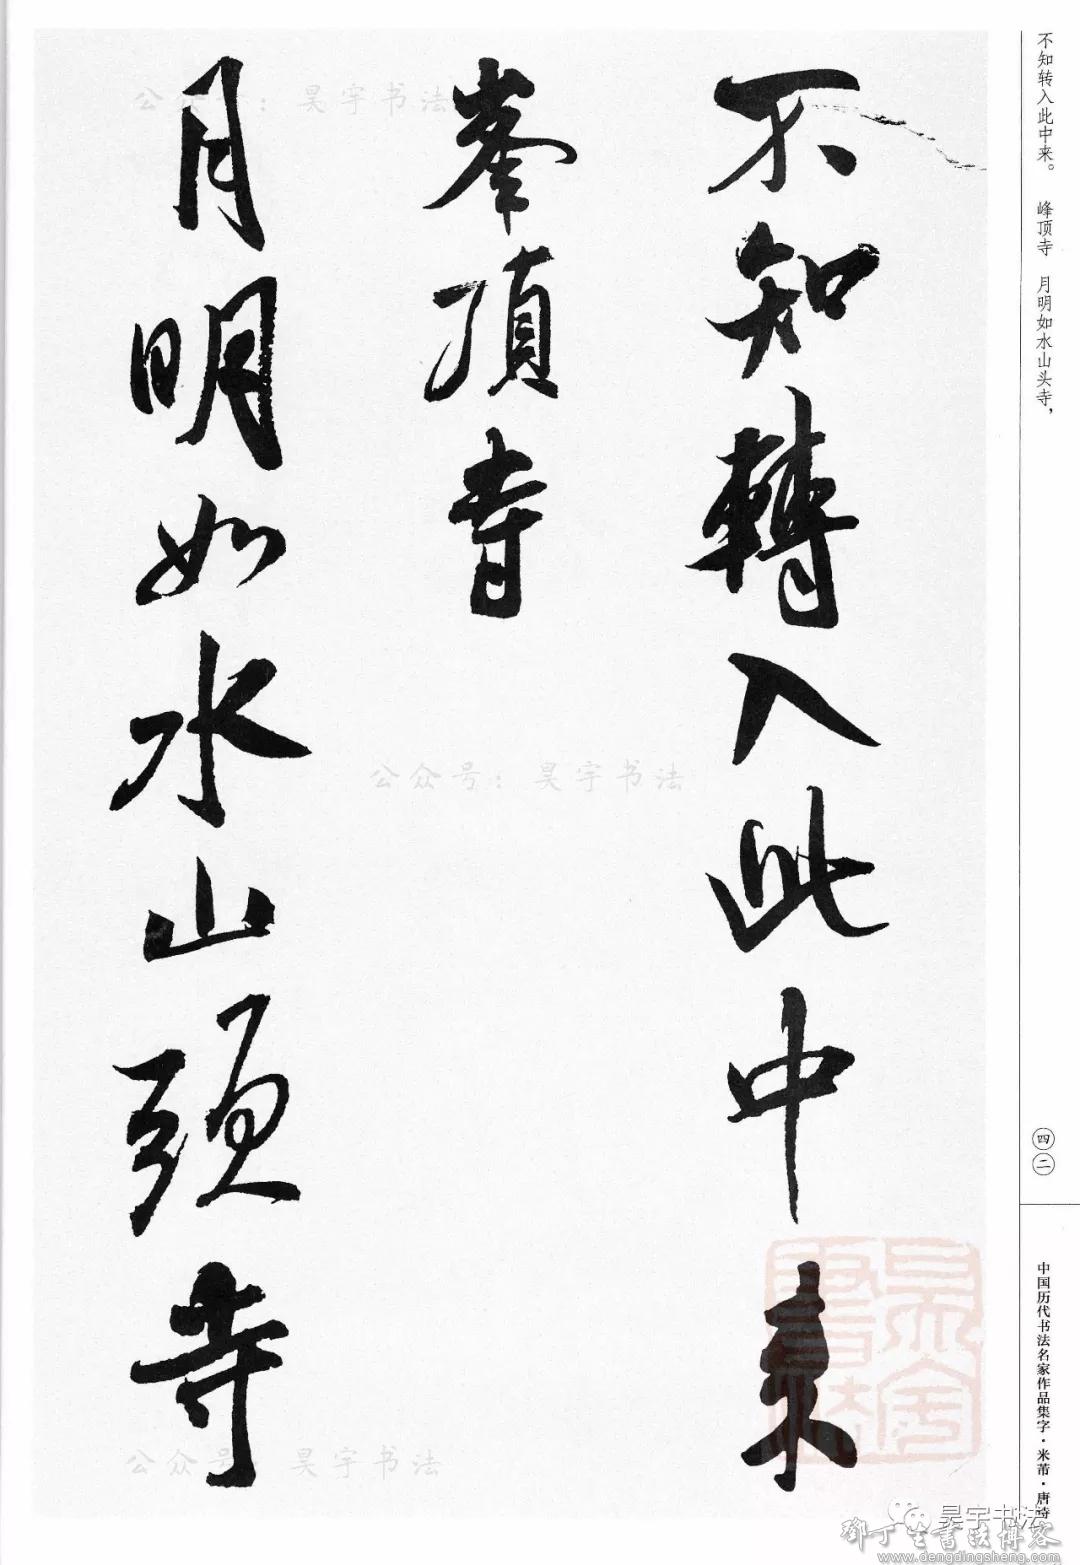 不知转入此中来。 峰顶寺 月明如水山头寺，
不知轉入此中来
峯頂寺
月明如水山頭寺
四二
中国历代书法名家作品集字·米芾·唐诗
公众号：昊宇书法
公众号：昊宇书法
公众号：昊宇书法
昊宇书法
鄧丁生書法博客
www.dengdingsheng.com